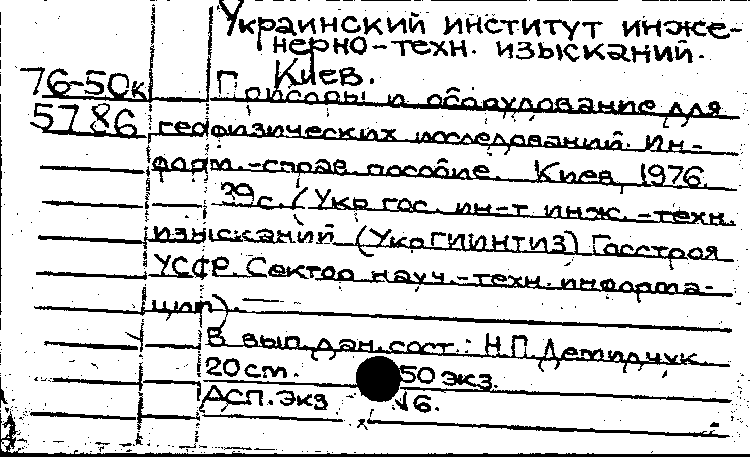 Украинский институт инже-
нерно-техн. изысканий.
Киев.
76-50к Приборы и оборудование для
5786 геофизических исследований. Ин-
форм.-справ. пособие. Киев, 1976.
39с. (Укр гос. ин-т инж.-техн.
изысканий (УкрГИИНТИЗ) Госстроя
УССР. Сектор науч.-техн. информа-
ции).
В вып. дан. сост.: Н.П. Демидчук
20 см. 50 экз.
ДСП. Экз. √6.